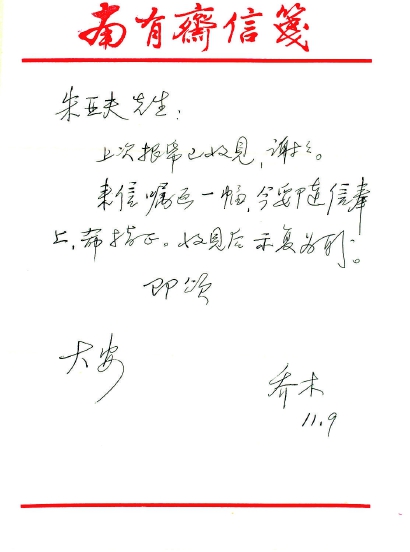 南有斋信笺
朱亚夫先生：
上次报第已收见，谢谢。
来信嘱画一幅，今随信奉
上，希指正。收见后示复为盼。
即颂
大安
乔木
11.9